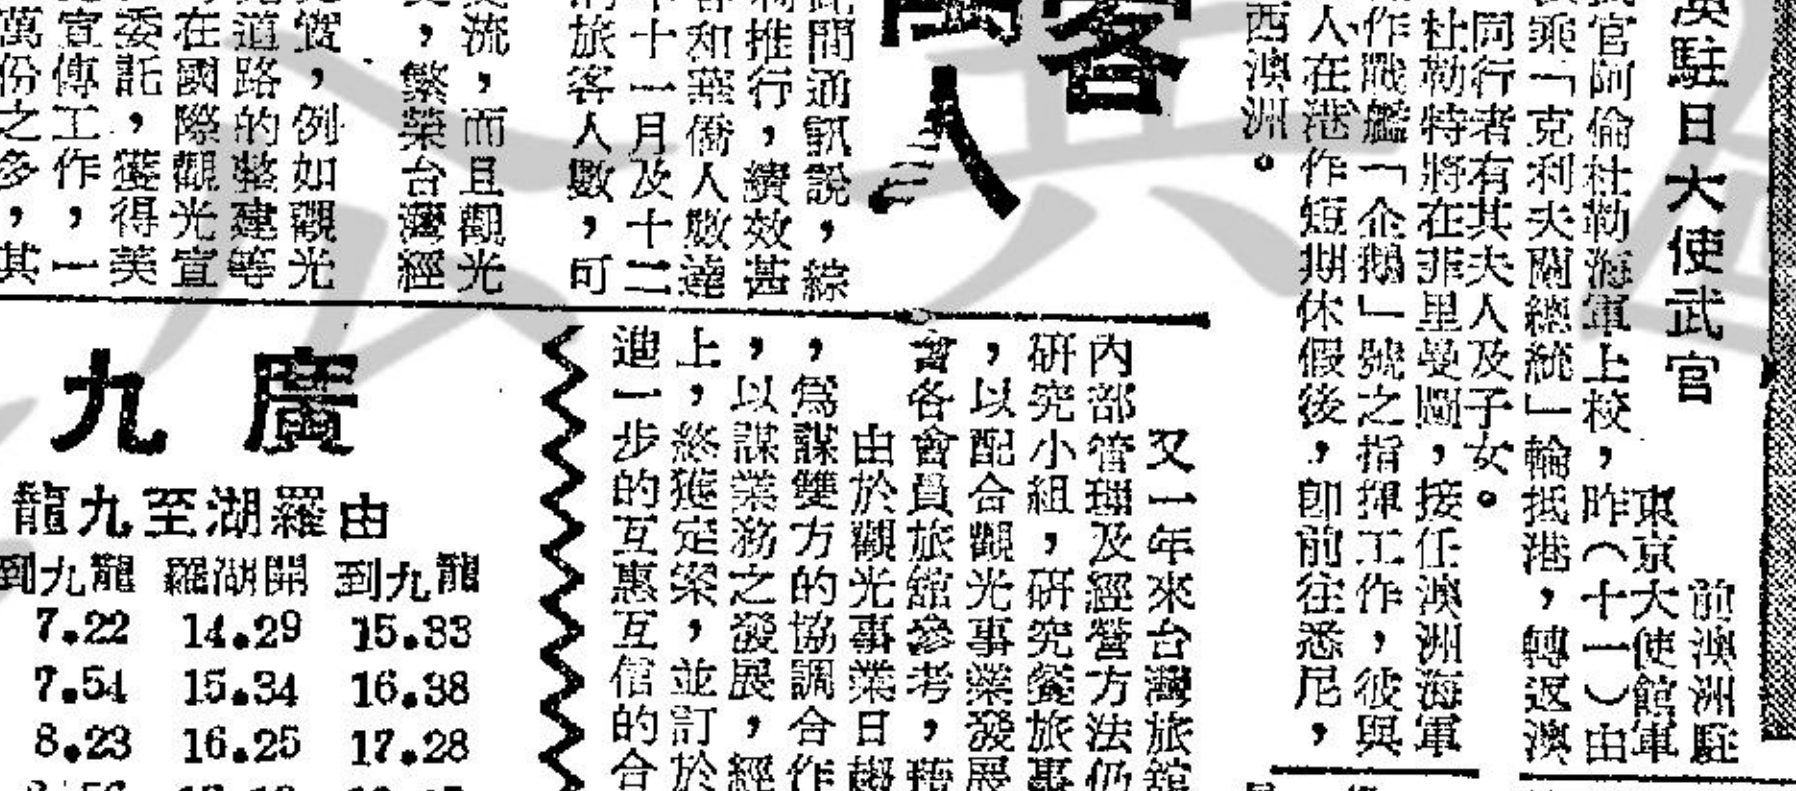 澳駐日大使武官
前澳洲駐
東京大使館軍
官阿倫杜勒海軍上校，昨（十一）由
乘「克利夫蘭總統」輪抵港，轉返澳
同行者有其夫人及子女。
杜勒特將在菲里曼圖，接任澳洲海軍
作戰艦「企鵝」號之指揮工作，彼與
人在港作短期休假後，即前往悉尼，
西澳洲。
客
萬人
此間通訊說，綜
推行，績效甚
和華僑人數達
十一月及十二
旅客人數，可
流，而且觀光
，繁榮台灣經
實，例如觀光
道路的整建等
在國際觀光宣
委託，獲得美
宣傳工作，一
萬份之多，其
又一年來台灣旅館
內部管理及經營方法仍
研究小組，研究餐旅事
，以配合觀光事業發展
會各會員旅館參考，
由於觀光事業日趨
，爲謀雙方的協調合作
，以謀業務之發展，經
上，終獲定案，並訂於
進一步的互惠互信的合
廣九
由羅湖至九龍
到九龍 羅湖開 到九龍
7.22 14.29 15.33
7.54 15.34 16.38
8.23 16.25 17.28